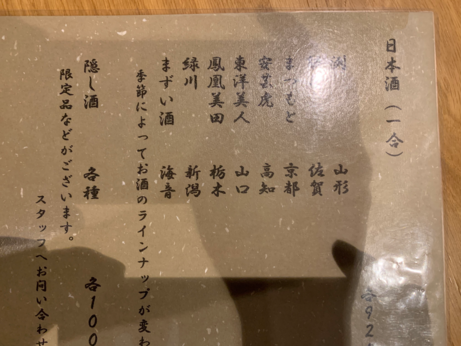 日本酒（一合）
各92
山形
佐賀
まつもと 京都
安芸虎 高知
東洋美人 山口
鳳凰美田 栃木
緑川 新潟
まずい酒 海音
季節によってお酒のラインナップが変わ
隠し酒 各種 各100
限定品などがございます。
スタッフへお問い合わせ